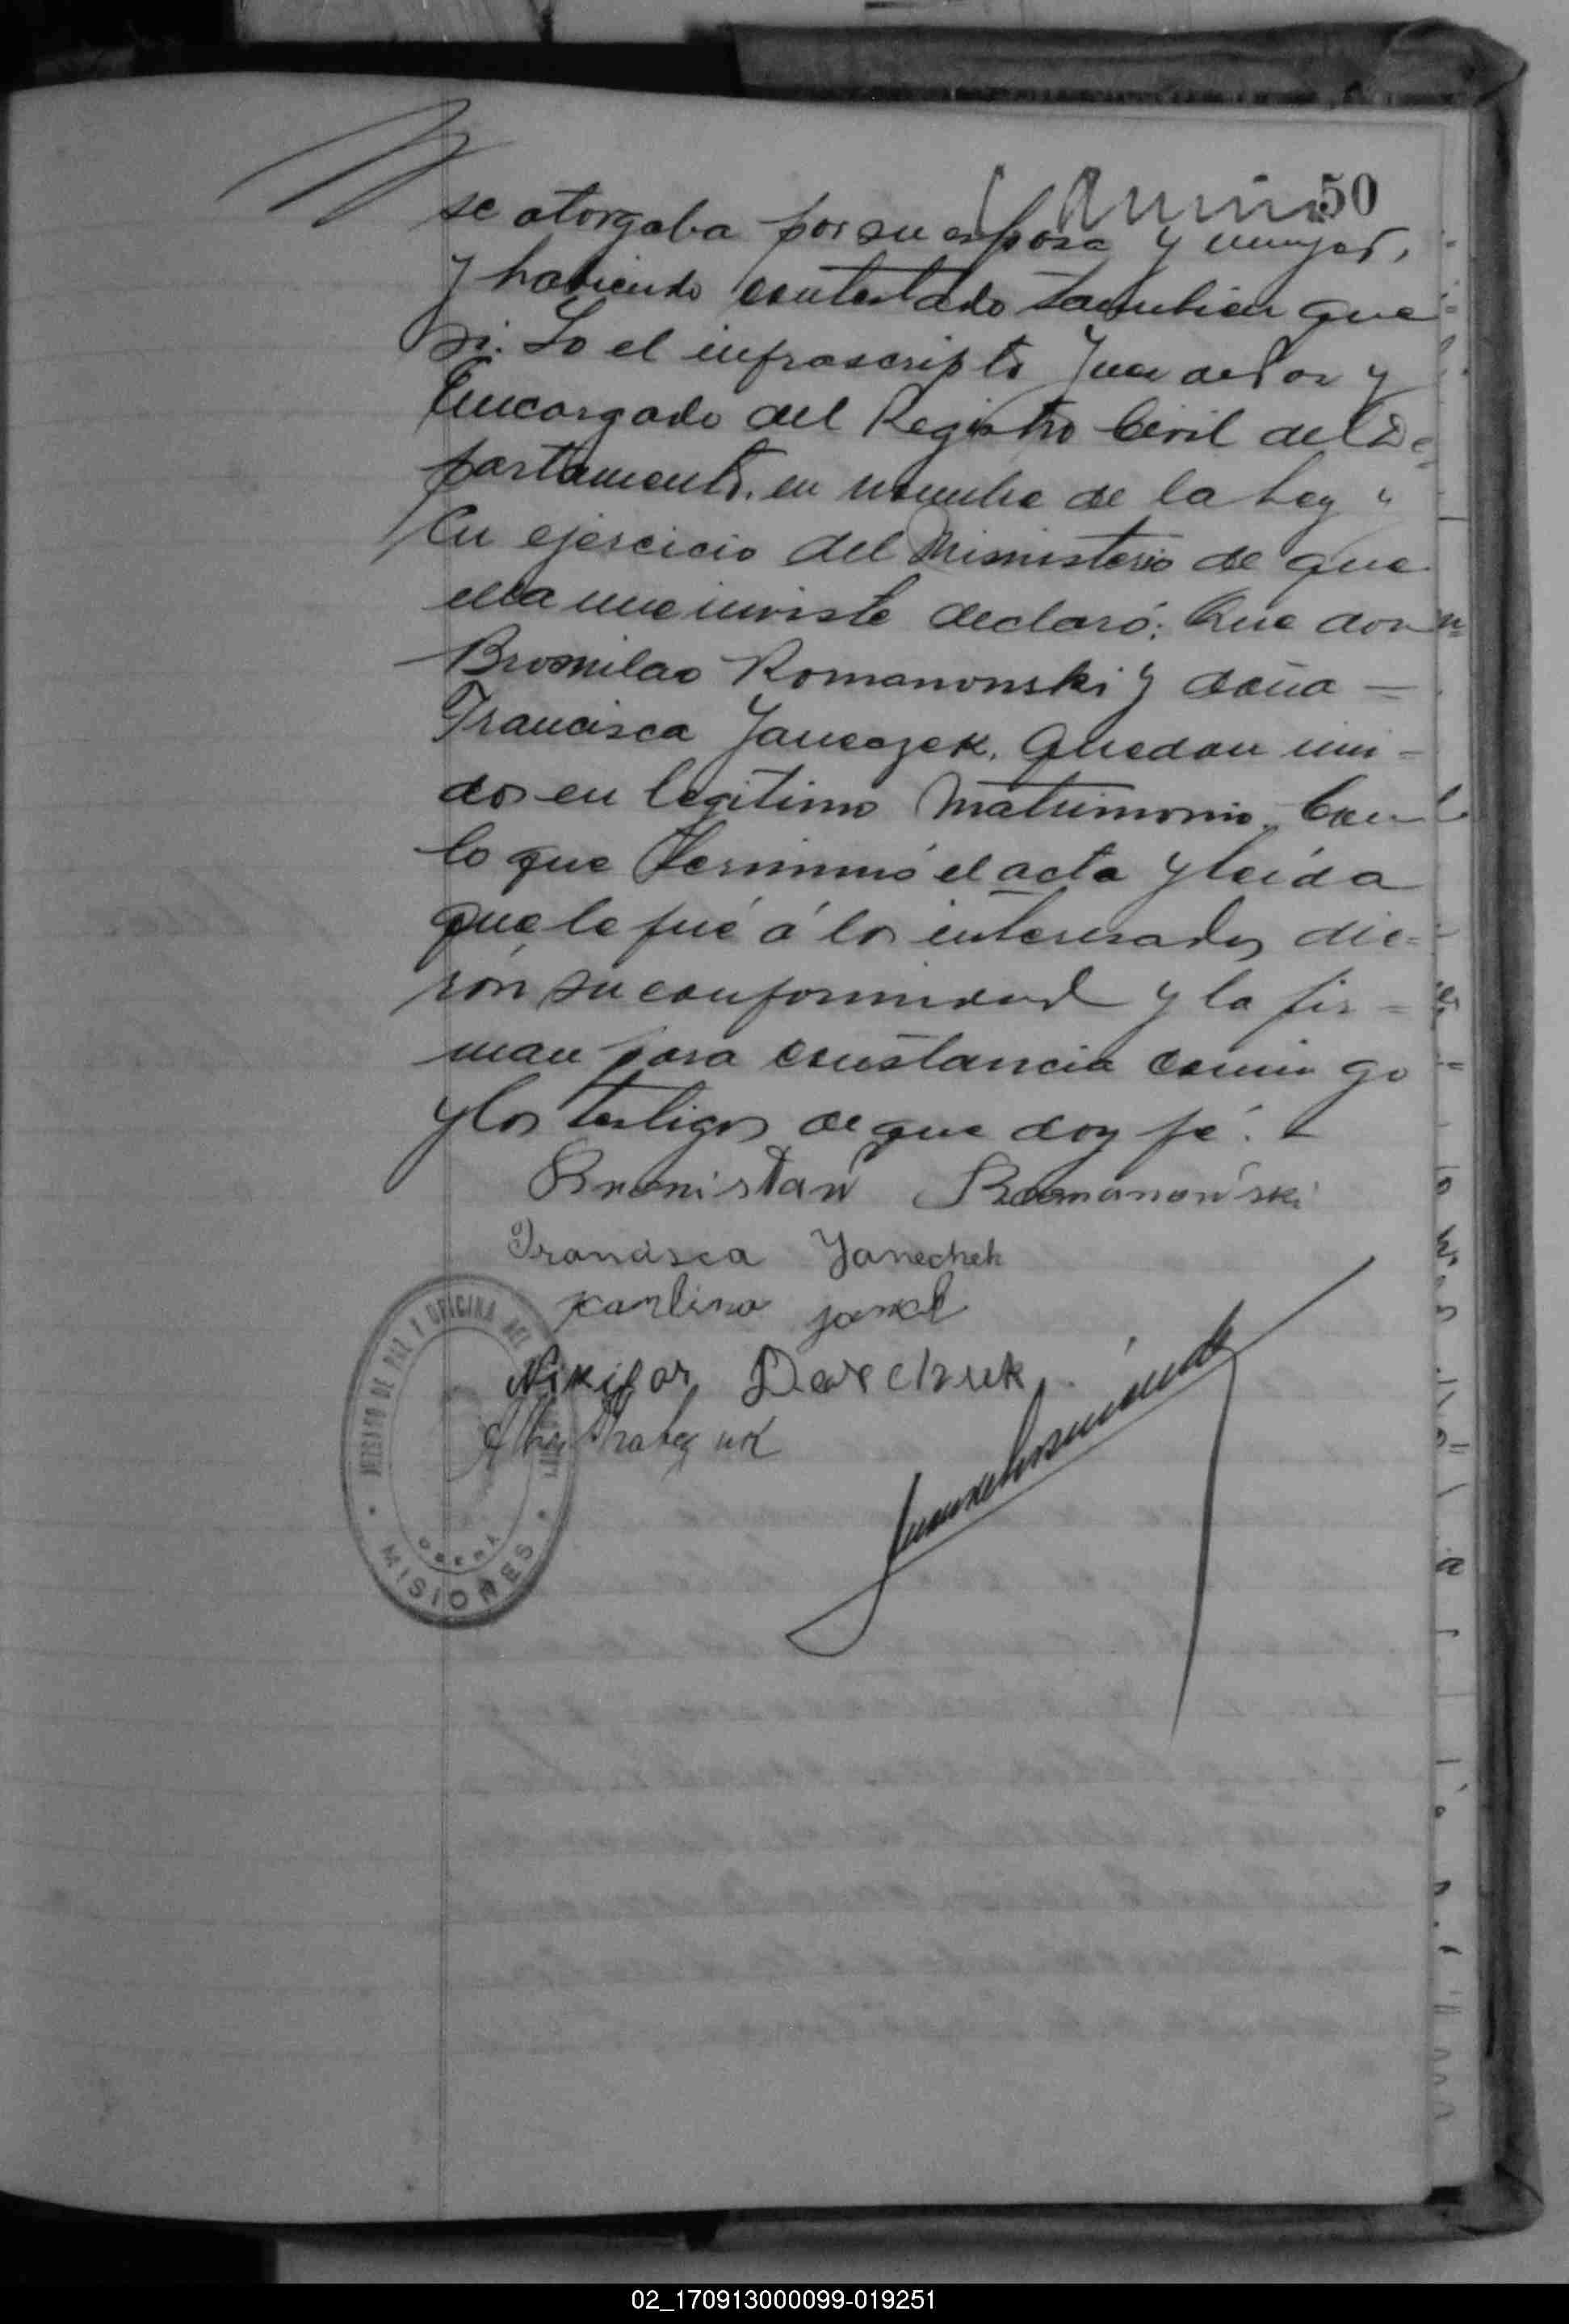 50
se otorgaba por su esposa y mujer,
y habiendo contestado tambien que
si. Yo el infrascripto Juez de Paz y
Encargado del Registro Civil del De=
partamento, en nombre de la Ley y
en ejercicio del Ministerio de que
ella me inviste declaró: Que don
Bromilao Romanonski y doña =
Francisca Janeczek, quedan uni=
dos en legitimo Matrimonio. Con
lo que terminó el acta y leída
que le fué á los interesados die=
rón su conformidad y la fir=
man para constancia conmigo
y los testigos de que doy fé.
Bronisław Romanowski
Francisca Yanechek
Karlina
Nikifor Darczuk
JUZGADO DE PAZ Y OFICINA DEL
OBERA
MISIONES
02_170913000099-019251